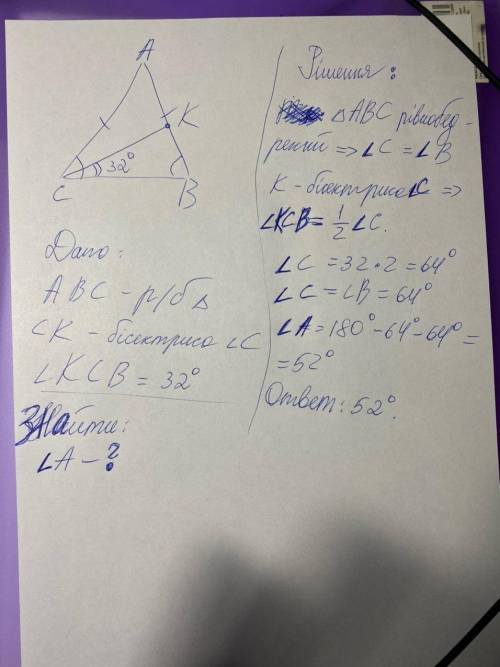 A
K
32°
C
B
Дано:
ABC - р/б △
CK - бісектриса ∠C
∠KCB = 32°
Знайти:
∠A - ?
Рішення:
△ABC рівнобед-
рений => ∠C = ∠B
K - бісектриса ∠C =>
∠KCB = 1/2 ∠C.
∠C = 32•2 = 64°
∠C = ∠B = 64°
∠A = 180° - 64° - 64° =
= 52°
Ответ: 52°.